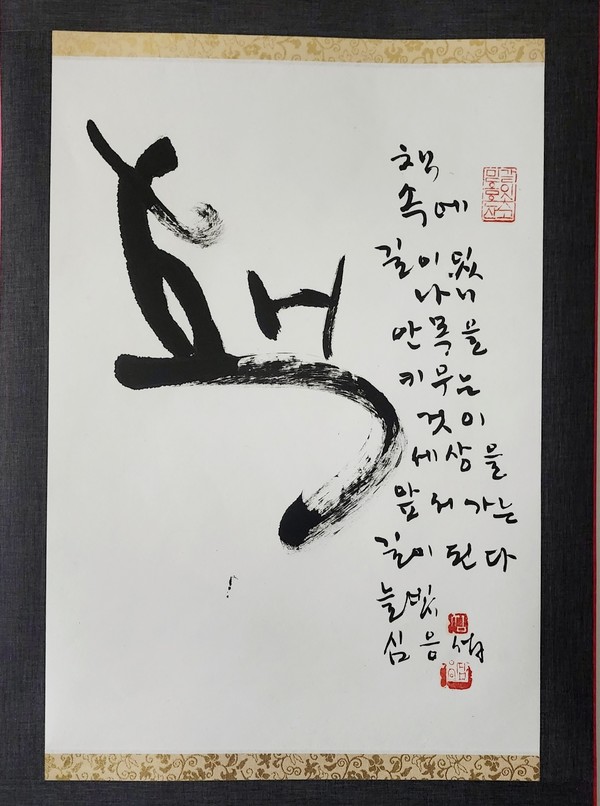 책
책
속에
길이 있
나니
안목을
키우는
것이
세상을
앞서가는
길이 된다
늘빛
심응섭